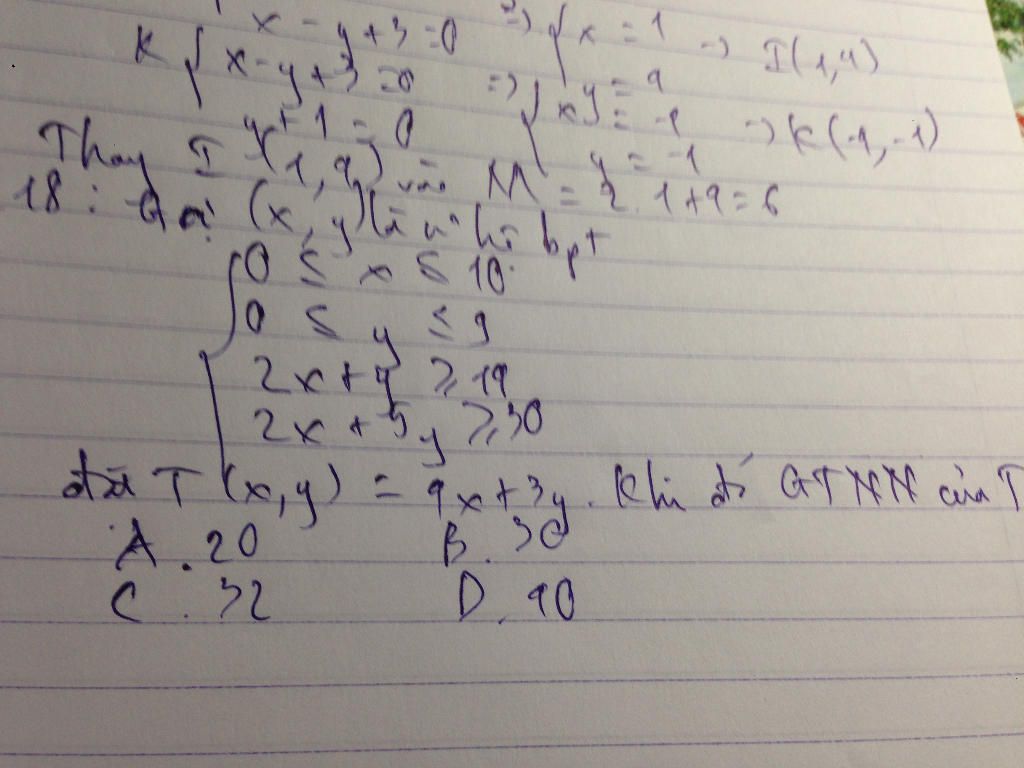 x - y + 3 = 0 => { x = 1 -> I(1,4)
K { x - y + 3 = 0 => { y = 4
y + 1 = 0 { x = -1 -> K(-1,-1)
Thay I (1,4) vào M = 2.1+4=6 y = -1
18: Gọi (x,y) là hệ bpt
0 ≤ x ≤ 10
0 ≤ y ≤ 9
2x + y ≥ 14
2x + 5y ≥ 30
đặt T (x,y) = 4x+3y. Khi đó GTNN của T
A. 20 B. 30
C. 32 D. 40